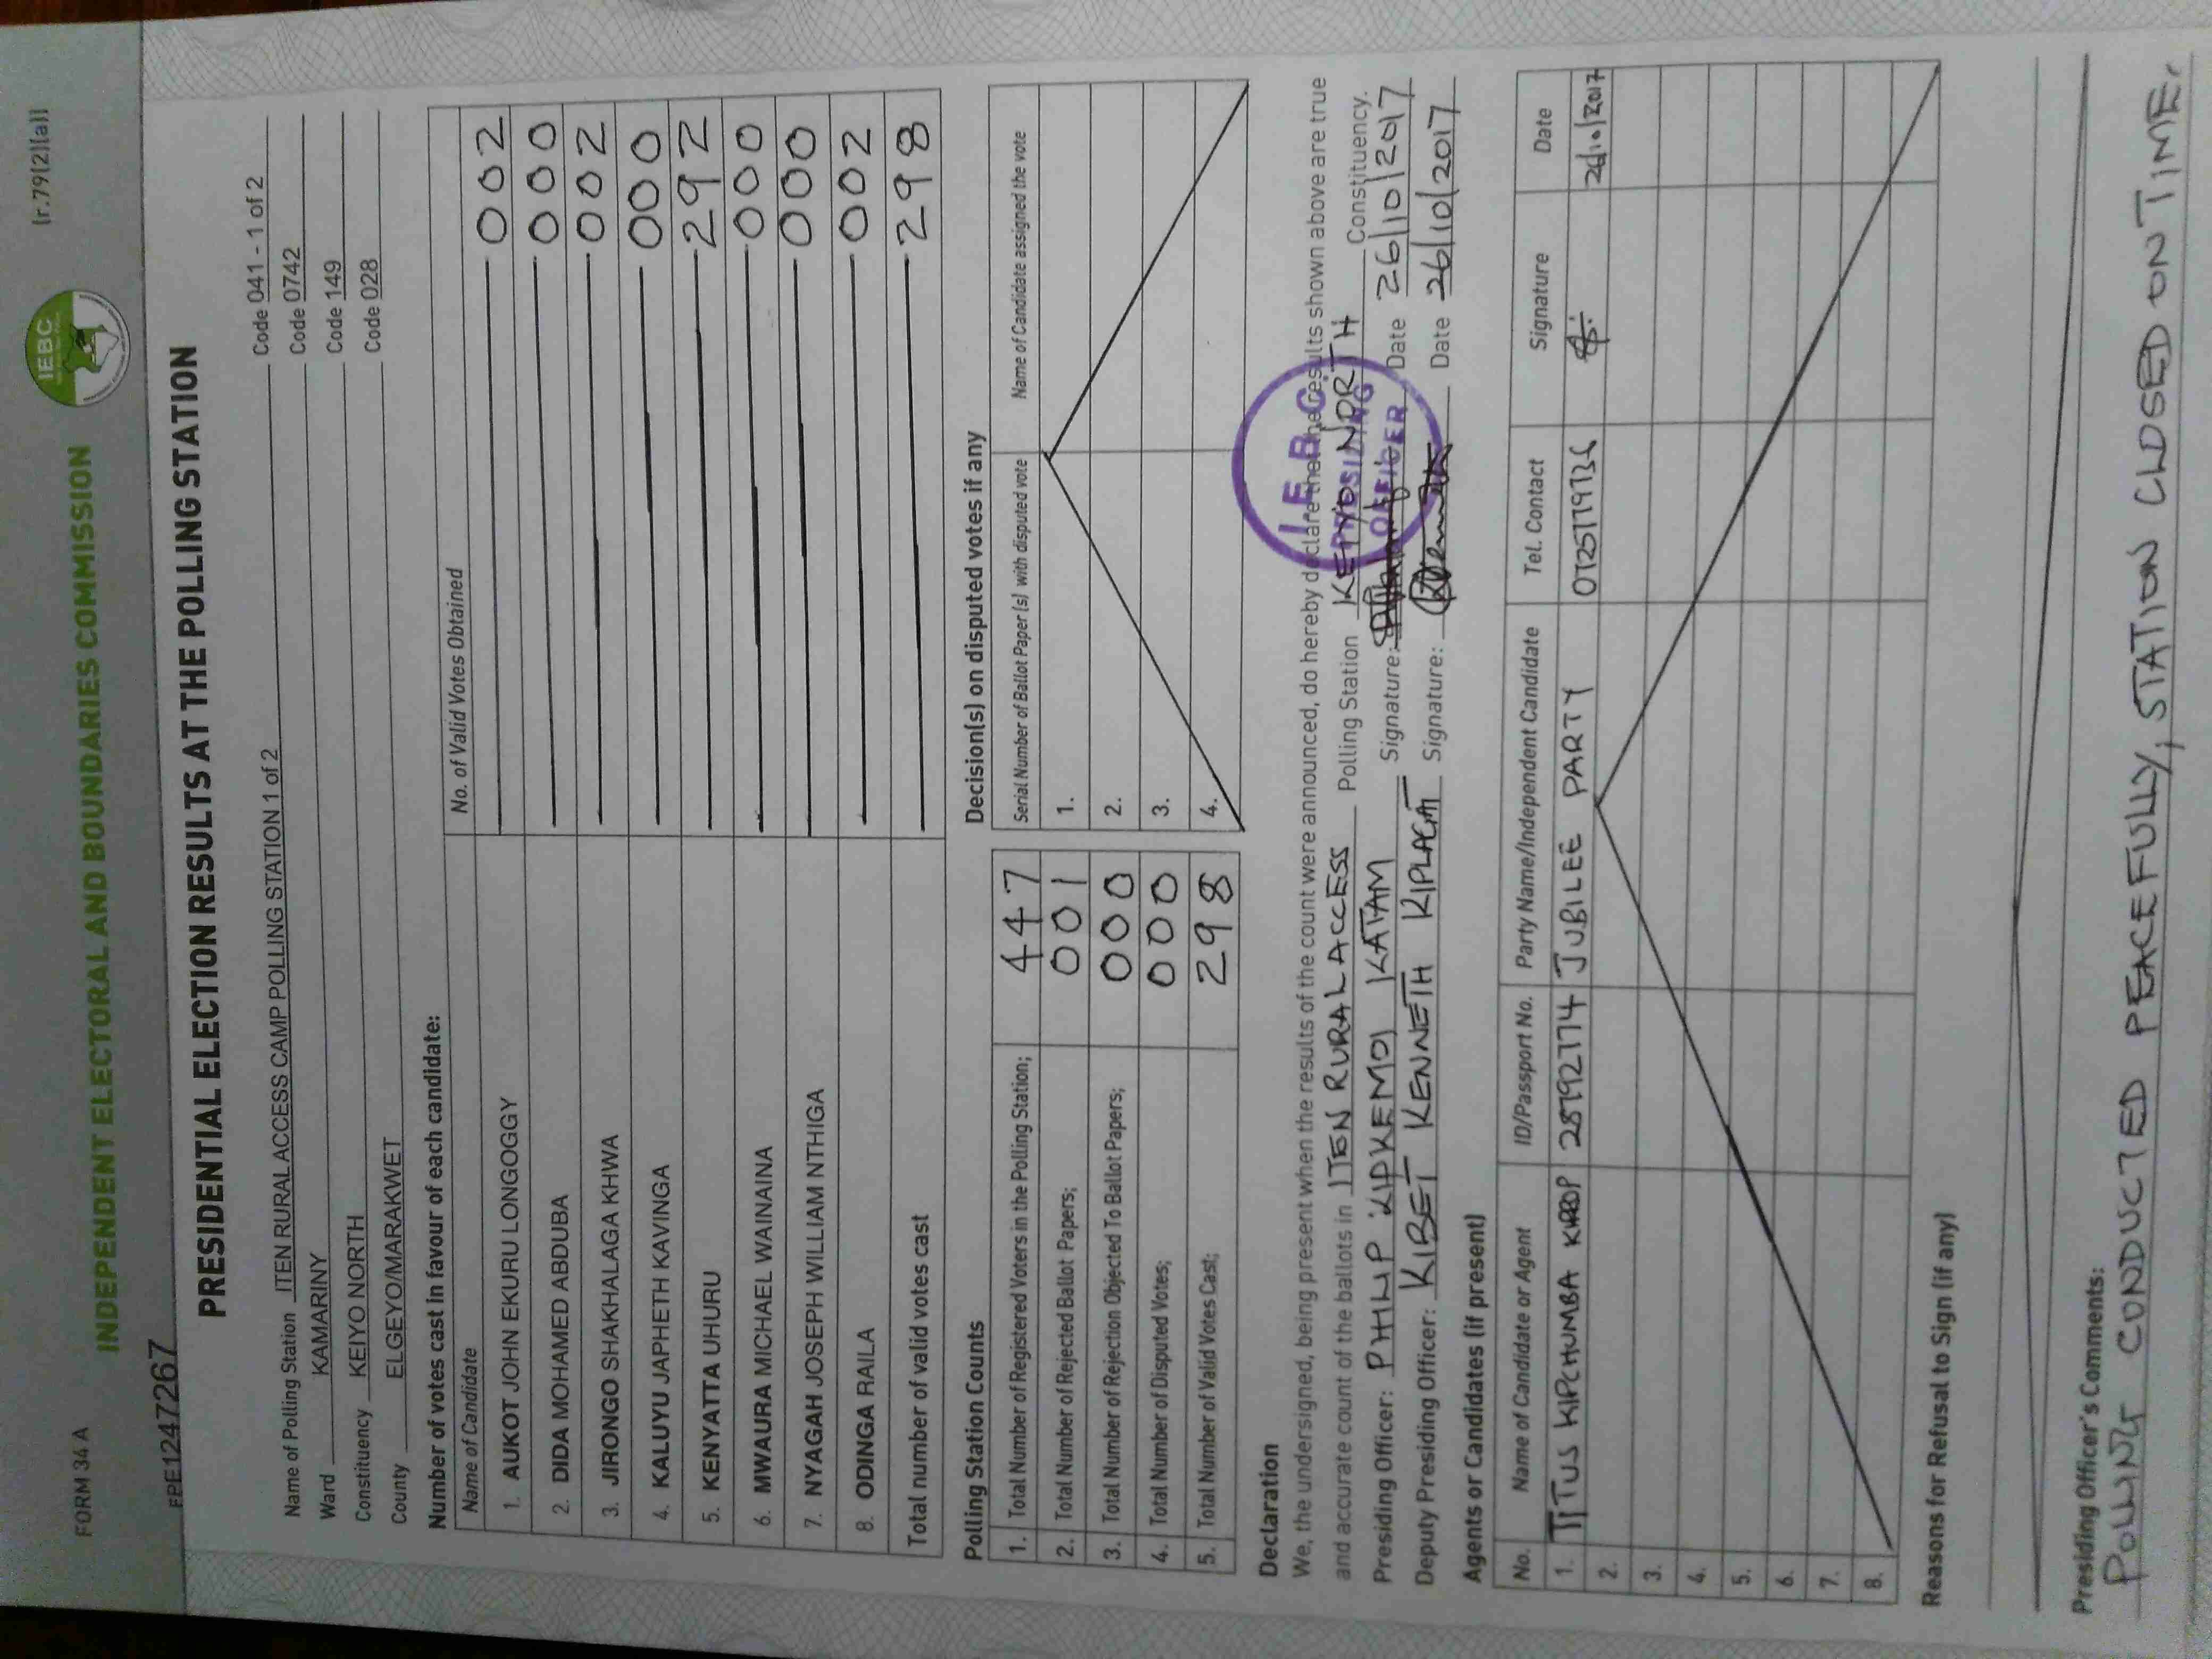 FORM 34 A
(r.79(2)(a))
IEBC
INDEPENDENT ELECTORAL AND BOUNDARIES COMMISSION
FPE1247267
PRESIDENTIAL ELECTION RESULTS AT THE POLLING STATION
Name of Polling Station ITEN RURAL ACCESS CAMP POLLING STATION 1 of 2 Code 041 - 1 of 2
Ward KAMARINY Code 0742
Constituency KEIYO NORTH Code 149
County ELGEYO/MARAKWET Code 028
Number of votes cast in favour of each candidate:
Name of Candidate No. of Valid Votes Obtained
1. AUKOT JOHN EKURU LONGOGGY 002
2. DIDA MOHAMED ABDUBA 000
3. JIRONGO SHAKHALAGA KHWA 002
4. KALUYU JAPHETH KAVINGA 000
5. KENYATTA UHURU 292
6. MWAURA MICHAEL WAINAINA 000
7. NYAGAH JOSEPH WILLIAM NTHIGA 000
8. ODINGA RAILA 002
Total number of valid votes cast 298
Polling Station Counts
1. Total Number of Registered Voters in the Polling Station; 447
2. Total Number of Rejected Ballot Papers; 001
3. Total Number of Rejection Objected To Ballot Papers; 000
4. Total Number of Disputed Votes; 000
5. Total Number of Valid Votes Cast; 298
Decision(s) on disputed votes if any
Serial Number of Ballot Paper (s) with disputed vote Name of Candidate assigned the vote
1.
2.
3.
4.
Declaration
We, the undersigned, being present when the results of the count were announced, do hereby declare that the results shown above are true
and accurate count of the ballots in ITEN RURAL ACCESS Polling Station KEIYO NORTH Constituency.
Presiding Officer: PHILIP KIPKEMOI KATAM Signature: Date 26/10/2017
Deputy Presiding Officer: KIBET KENNETH KIPLAGAT Signature: Date 26/10/2017
I.E.B.C.
PRESIDING
OFFICER
Agents or Candidates (if present)
No. Name of Candidate or Agent ID/Passport No. Party Name/Independent Candidate Tel. Contact Signature Date
1. TITUS KIPCHUMBA 28792774 JUBILEE PARTY 26/10/2017
2.
3.
4.
5.
6.
7.
8.
Reasons for Refusal to Sign (if any)
Presiding Officer's Comments:
POLLING CONDUCTED PEACEFULLY, STATION CLOSED ON TIME.